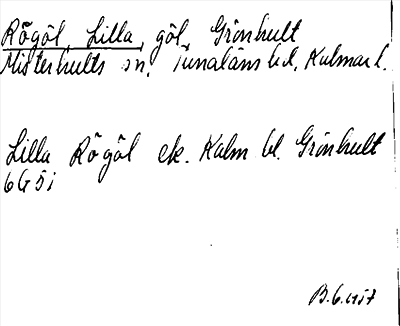 Rögöl, Lilla, göl, Grönhult
Misterhults sn, Tunaläns hd, Kalmar l.
Lilla Rögöl ek. Kalm bl. Grönhult
6G5i
B.G.